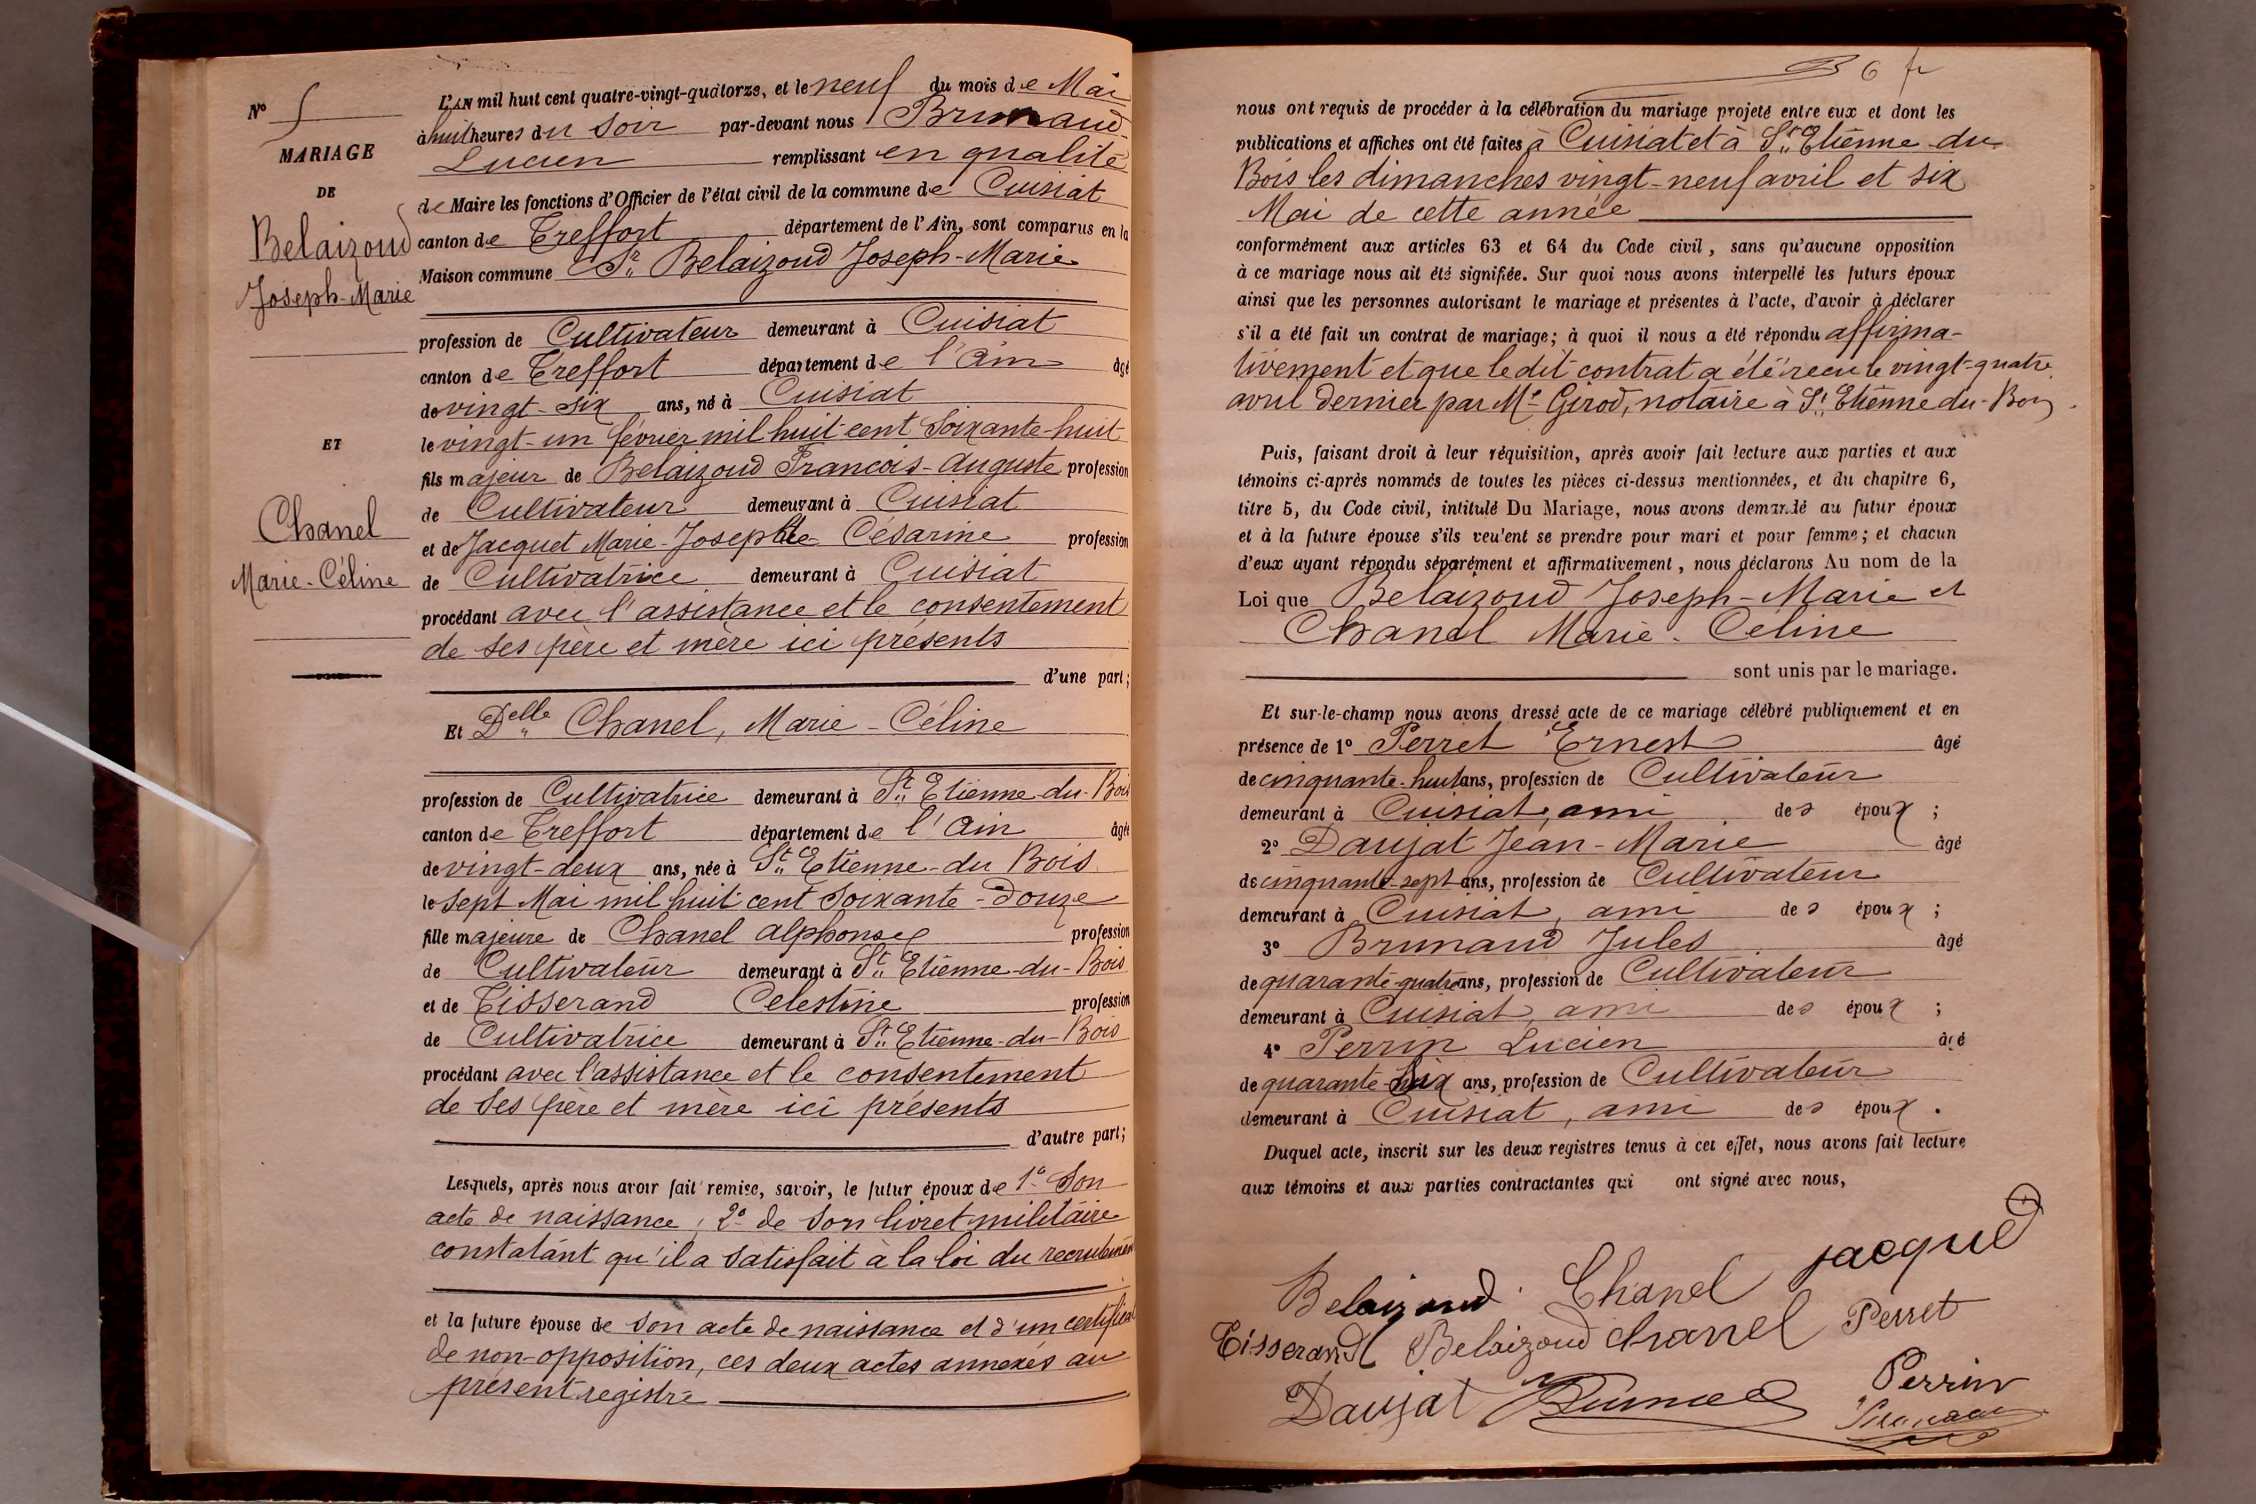 N° 5
MARIAGE
DE
Belaizoud
Joseph-Marie
ET
Chanel
Marie-Céline
L'AN mil huit cent quatre-vingt-quatorze, et le neuf du mois de Mai
à huit heures du soir par-devant nous Brunaud
Lucien remplissant en qualité
de Maire les fonctions d'Officier de l'état civil de la commune de Cuisiat
canton de Treffort département de l'Ain, sont comparus en la
Maison commune Sr. Belaizoud Joseph-Marie
profession de Cultivateur demeurant à Cuisiat
canton de Treffort département de l'Ain âgé
de vingt-six ans, né à Cuisiat
le vingt-un février mil huit cent soixante-huit
fils majeur de Belaizoud François-Auguste profession
de Cultivateur demeurant à Cuisiat
et de Jacquet Marie-Josephte Césarine profession
de Cultivatrice demeurant à Cuisiat
procédant avec l'assistance et le consentement
de ses père et mère ici présents
d'une part;
Et Delle Chanel, Marie-Céline
profession de Cultivatrice demeurant à St. Etienne-du-Bois
canton de Treffort département de l'Ain âgée
de vingt-deux ans, née à St. Etienne-du Bois
le sept Mai mil huit cent soixante-douze
fille majeure de Chanel Alphonse profession
de Cultivateur demeurant à St. Etienne-du-Bois
et de Tisserand Célestine profession
de Cultivatrice demeurant à St. Etienne-du-Bois
procédant avec l'assistance et le consentement
de ses père et mère ici présents
d'autre part;
Lesquels, après nous avoir fait remise, savoir, le futur époux de 1° Son
acte de naissance, 2° de son livret militaire
constatant qu'il a satisfait à la loi du recrutement
et la future épouse de son acte de naissance et d'un certificat
de non-opposition, ces deux actes annexés au
présent registre
6 fr
nous ont requis de procéder à la célébration du mariage projeté entre eux et dont les
publications et affiches ont été faites à Cuisiat et à St. Etienne-du
Bois les dimanches vingt-neuf avril et six
Mai de cette année
conformément aux articles 63 et 64 du Code civil, sans qu'aucune opposition
à ce mariage nous ait été signifiée. Sur quoi nous avons interpellé les futurs époux
ainsi que les personnes autorisant le mariage et présentes à l'acte, d'avoir à déclarer
s'il a été fait un contrat de mariage; à quoi il nous a été répondu affirma-
tivement et que ledit contrat a été recu le vingt-quatre
avril dernier par Me Girod, notaire à St. Etienne-du-Bois.
Puis, faisant droit à leur réquisition, après avoir fait lecture aux parties et aux
témoins ci-après nommés de toutes les pièces ci-dessus mentionnées, et du chapitre 6,
titre 5, du Code civil, intitulé Du Mariage, nous avons demandé au futur époux
et à la future épouse s'ils veulent se prendre pour mari et pour femme; et chacun
d'eux ayant répondu séparément et affirmativement, nous déclarons Au nom de la
Loi que Belaizoud Joseph-Marie et
Chanel Marie-Céline
sont unis par le mariage.
Et sur-le-champ nous avons dressé acte de ce mariage célébré publiquement et en
présence de 1° Perret Ernest âgé
de cinquante-huit ans, profession de Cultivateur
demeurant à Cuisiat, ami des époux;
2° Daujat Jean-Marie âgé
de cinquante-sept ans, profession de Cultivateur
demeurant à Cuisiat, ami des époux;
3° Brunaud Jules âgé
de quarante-quatre ans, profession de Cultivateur
demeurant à Cuisiat ami des époux;
4° Perrin Lucien âgé
de quarante-six ans, profession de Cultivateur
demeurant à Cuisiat, ami des époux.
Duquel acte, inscrit sur les deux registres tenus à cet effet, nous avons fait lecture
aux témoins et aux parties contractantes qui ont signé avec nous,
Belaizoud Chanel Jacquet
Tisserand Belaizoud Chanel Perret
Daujat Perrin